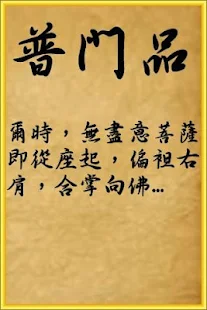 普門品
爾時，無盡意菩薩
即從座起，偏袒右
肩，合掌向佛...